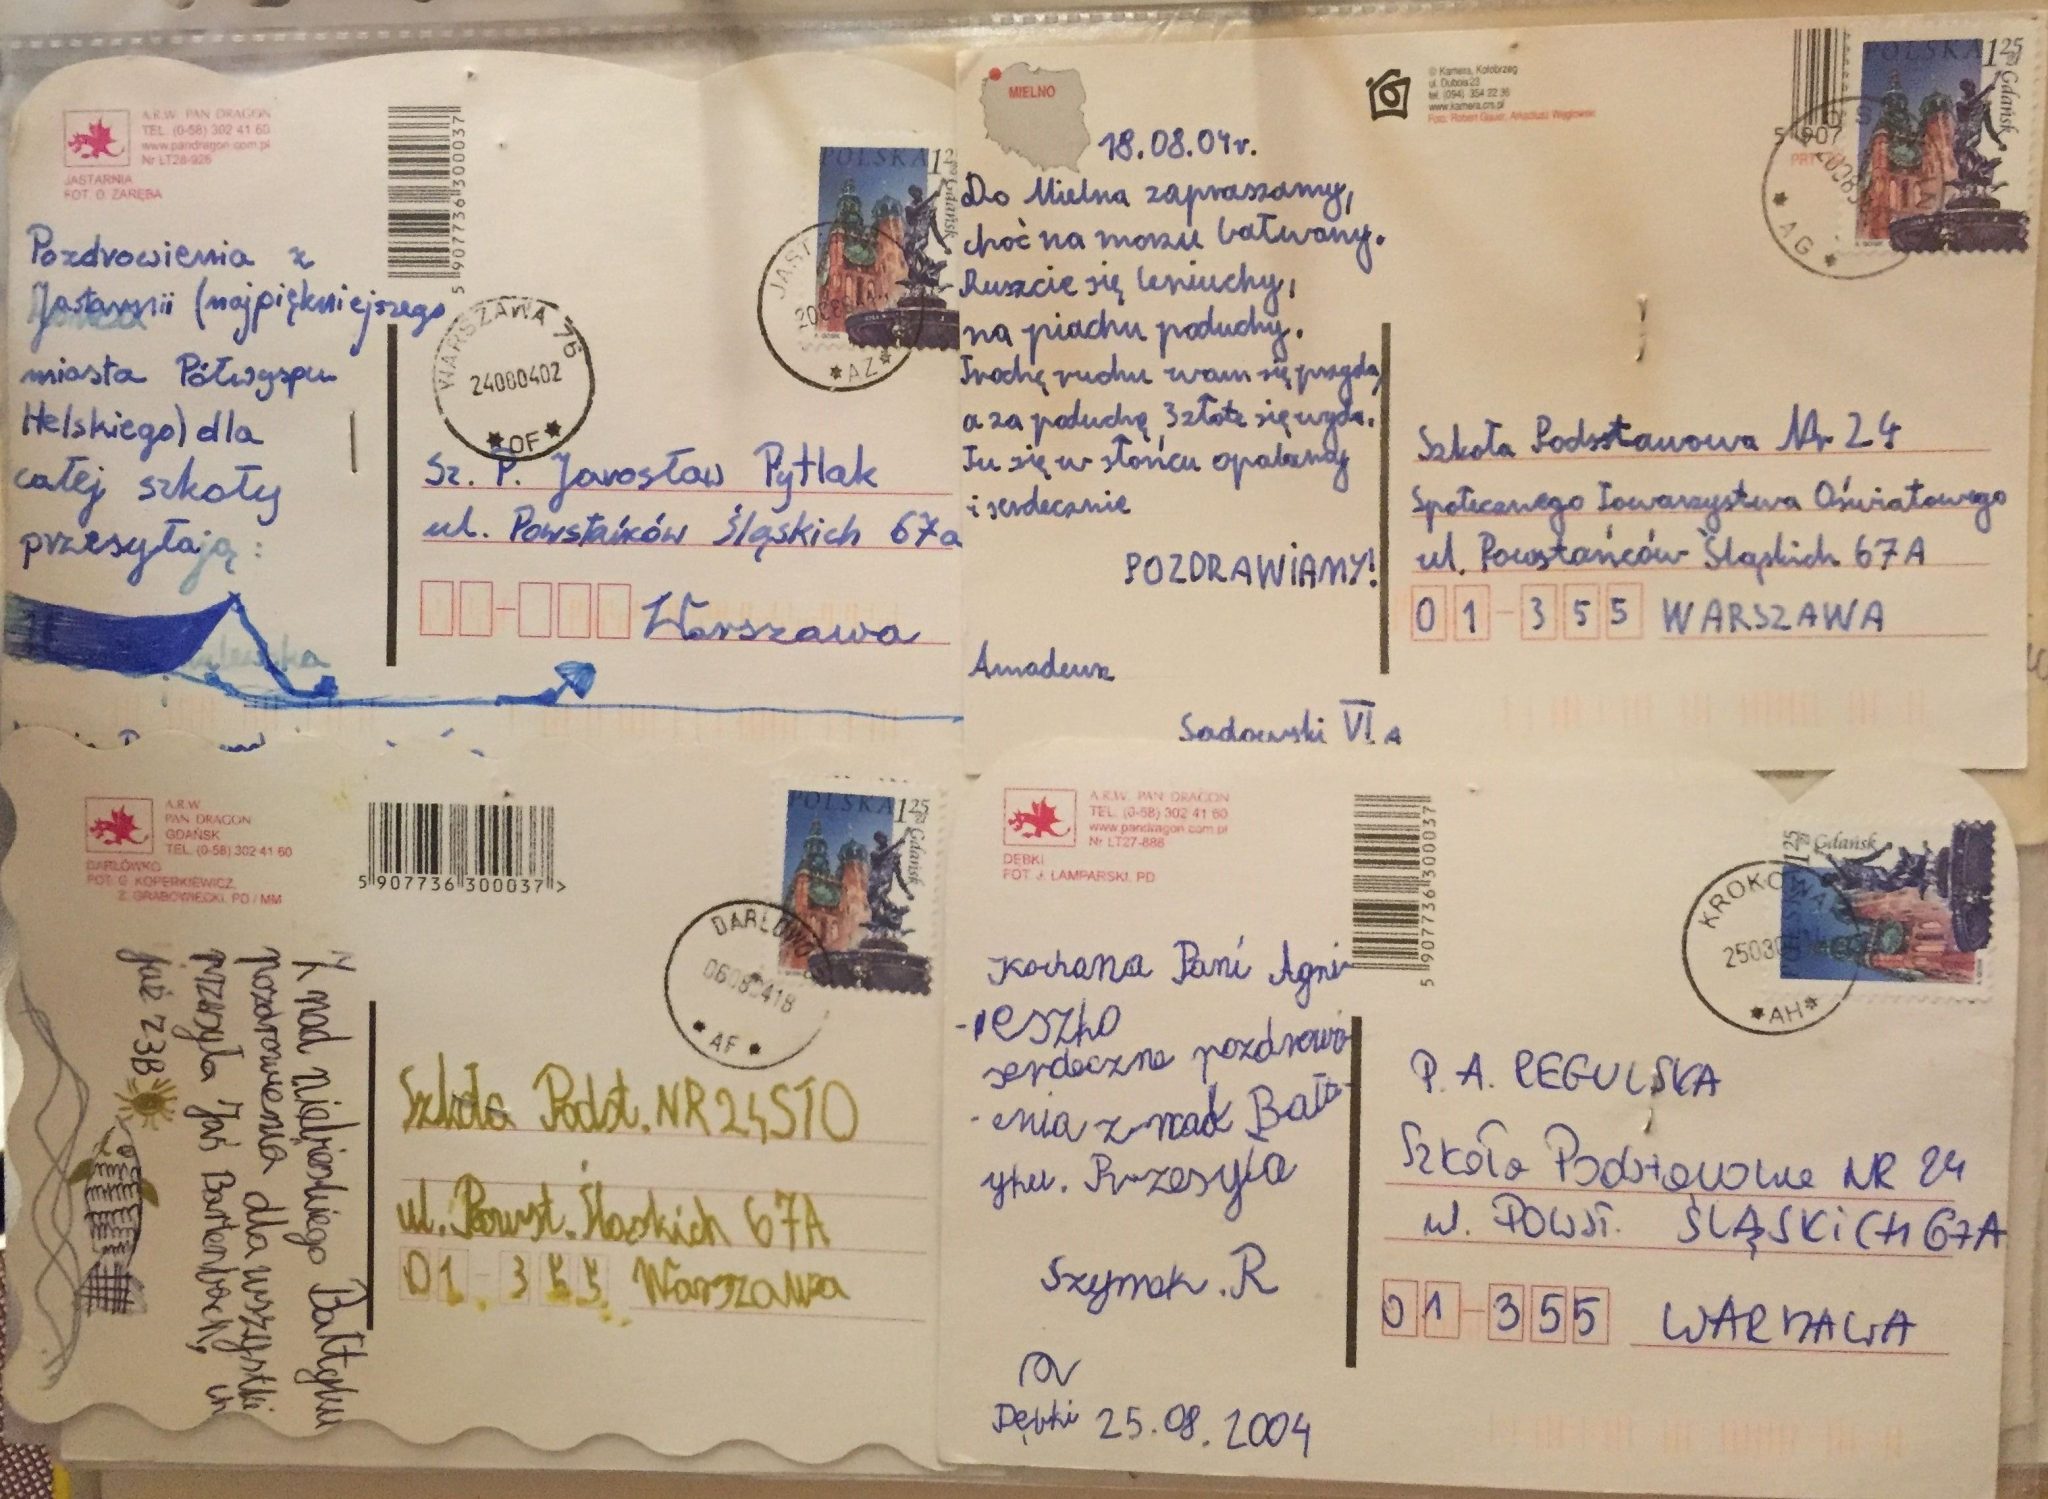 A.R.W. PAN DRAGON
TEL. (0-58) 302 41 60
www.pandragon.com.pl
Nr LT28-926
JASTARNIA
FOT. O. ZARĘBA
5 907736 300037
POLSKA 1
Gdańsk
JAST
*AZ*
WARSZAWA 76
24080402
*OF*
Pozdrowienia z
Jastarnii (najpiękniejszego
miasta Półwyspu
Helskiego) dla
całej szkoły
przesyłają:
Sz. P. Jarosław Pytlak
ul. Powstańców Śląskich 67a
Warszawa
MIELNO
© Kamera, Kołobrzeg
ul. Dubois 23
tel. (094) 354 22 36
www.kamera.crs.pl
Foto: Robert Glauer, Arkadiusz Węglowski
5 907
POLSKA 1 25
Gdańsk
* AG *
18.08.04r.
Do Mielna zapraszamy,
choć na morzu bałwany.
Ruszcie się leniuchy,
na piachu poduchy.
Trochę ruchu wam się przyda,
a za poduchę 3 złote się wyda.
Tu się w słońcu opalamy
i serdecznie
POZDRAWIAMY!
Amadeusz
Sadowski VI A
Szkoła Podsstawowa Nr 24
Społecznego Towarzystwa Oświatowego
ul. Powstańców Śląskich 67A
01-355 WARSZAWA
A.R.W.
PAN DRAGON
GDAŃSK
TEL. (0-58) 302 41 60
DARŁÓWKO
FOT. G. KOPERKIEWICZ,
Z. GRABOWIECKI, PD / MM
5 907736 300037 >
POLSKA 1 25
Gdańsk
DARŁOWO
* AF *
Z nad niebieskiego Bałtyku
pozdrowienia dla wszystki
przesyła Jaś Bartenbach,
już z 3B
Szkoła Podst. NR 24 STO
ul. Powst. Śląskich 67A
01-355 Warszawa
A.R.W. PAN DRAGON
TEL. (0-58) 302 41 60
www.pandragon.com.pl
Nr LT27-886
DĘBKI
FOT. J. LAMPARSKI, PD
5 907736 300037
1 25
Gdańsk
KROKOWA
*AH*
Kochana Pani Agni-
-eszko
serdeczne pozdrowi-
-enia z nad Bałt-
yku. Przesyła
Szymek. R
Dębki 25.08.2004
P. A. REGULSKA
Szkoła Podstawowa NR 24
ul. POWST. ŚLĄSKICH 67A
01-355 WARSZAWA